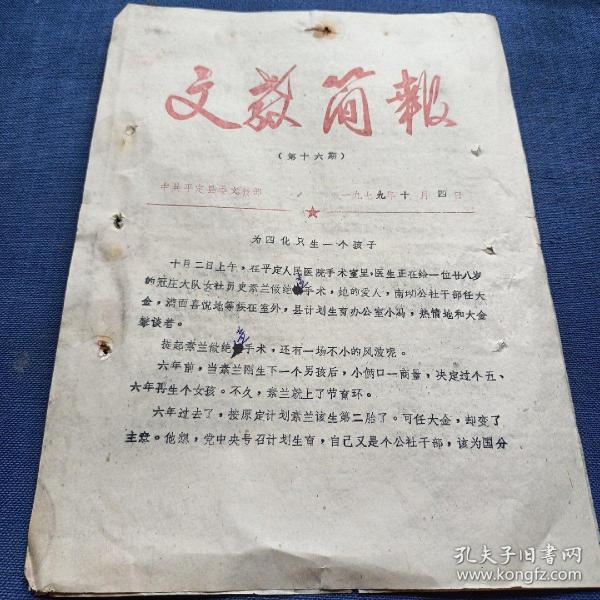 文教简报
（第十六期）
中共平定县委文教部 一九七九年十月四日
为四化只生一个孩子
十月二日上午，在平定人民医院手术室里，医生正在给一位廿八岁
的冠庄大队女社员史素兰做绝育手术，她的爱人，南坳公社干部任大
金，满面喜悦地等候在室外，县计划生育办公室小冯，热情地和大金
攀谈着。
提起素兰做绝育手术，还有一场不小的风波呢。
六年前，当素兰刚生下一个男孩后，小俩口一商量，决定过个五、
六年再生个女孩。不久，素兰就上了节育环。
六年过去了，按原定计划素兰该生第二胎了。可任大金，却变了
主意。他想，党中央号召计划生育，自己又是个公社干部，该为国分
孔夫子旧书网
www.kongfz.com